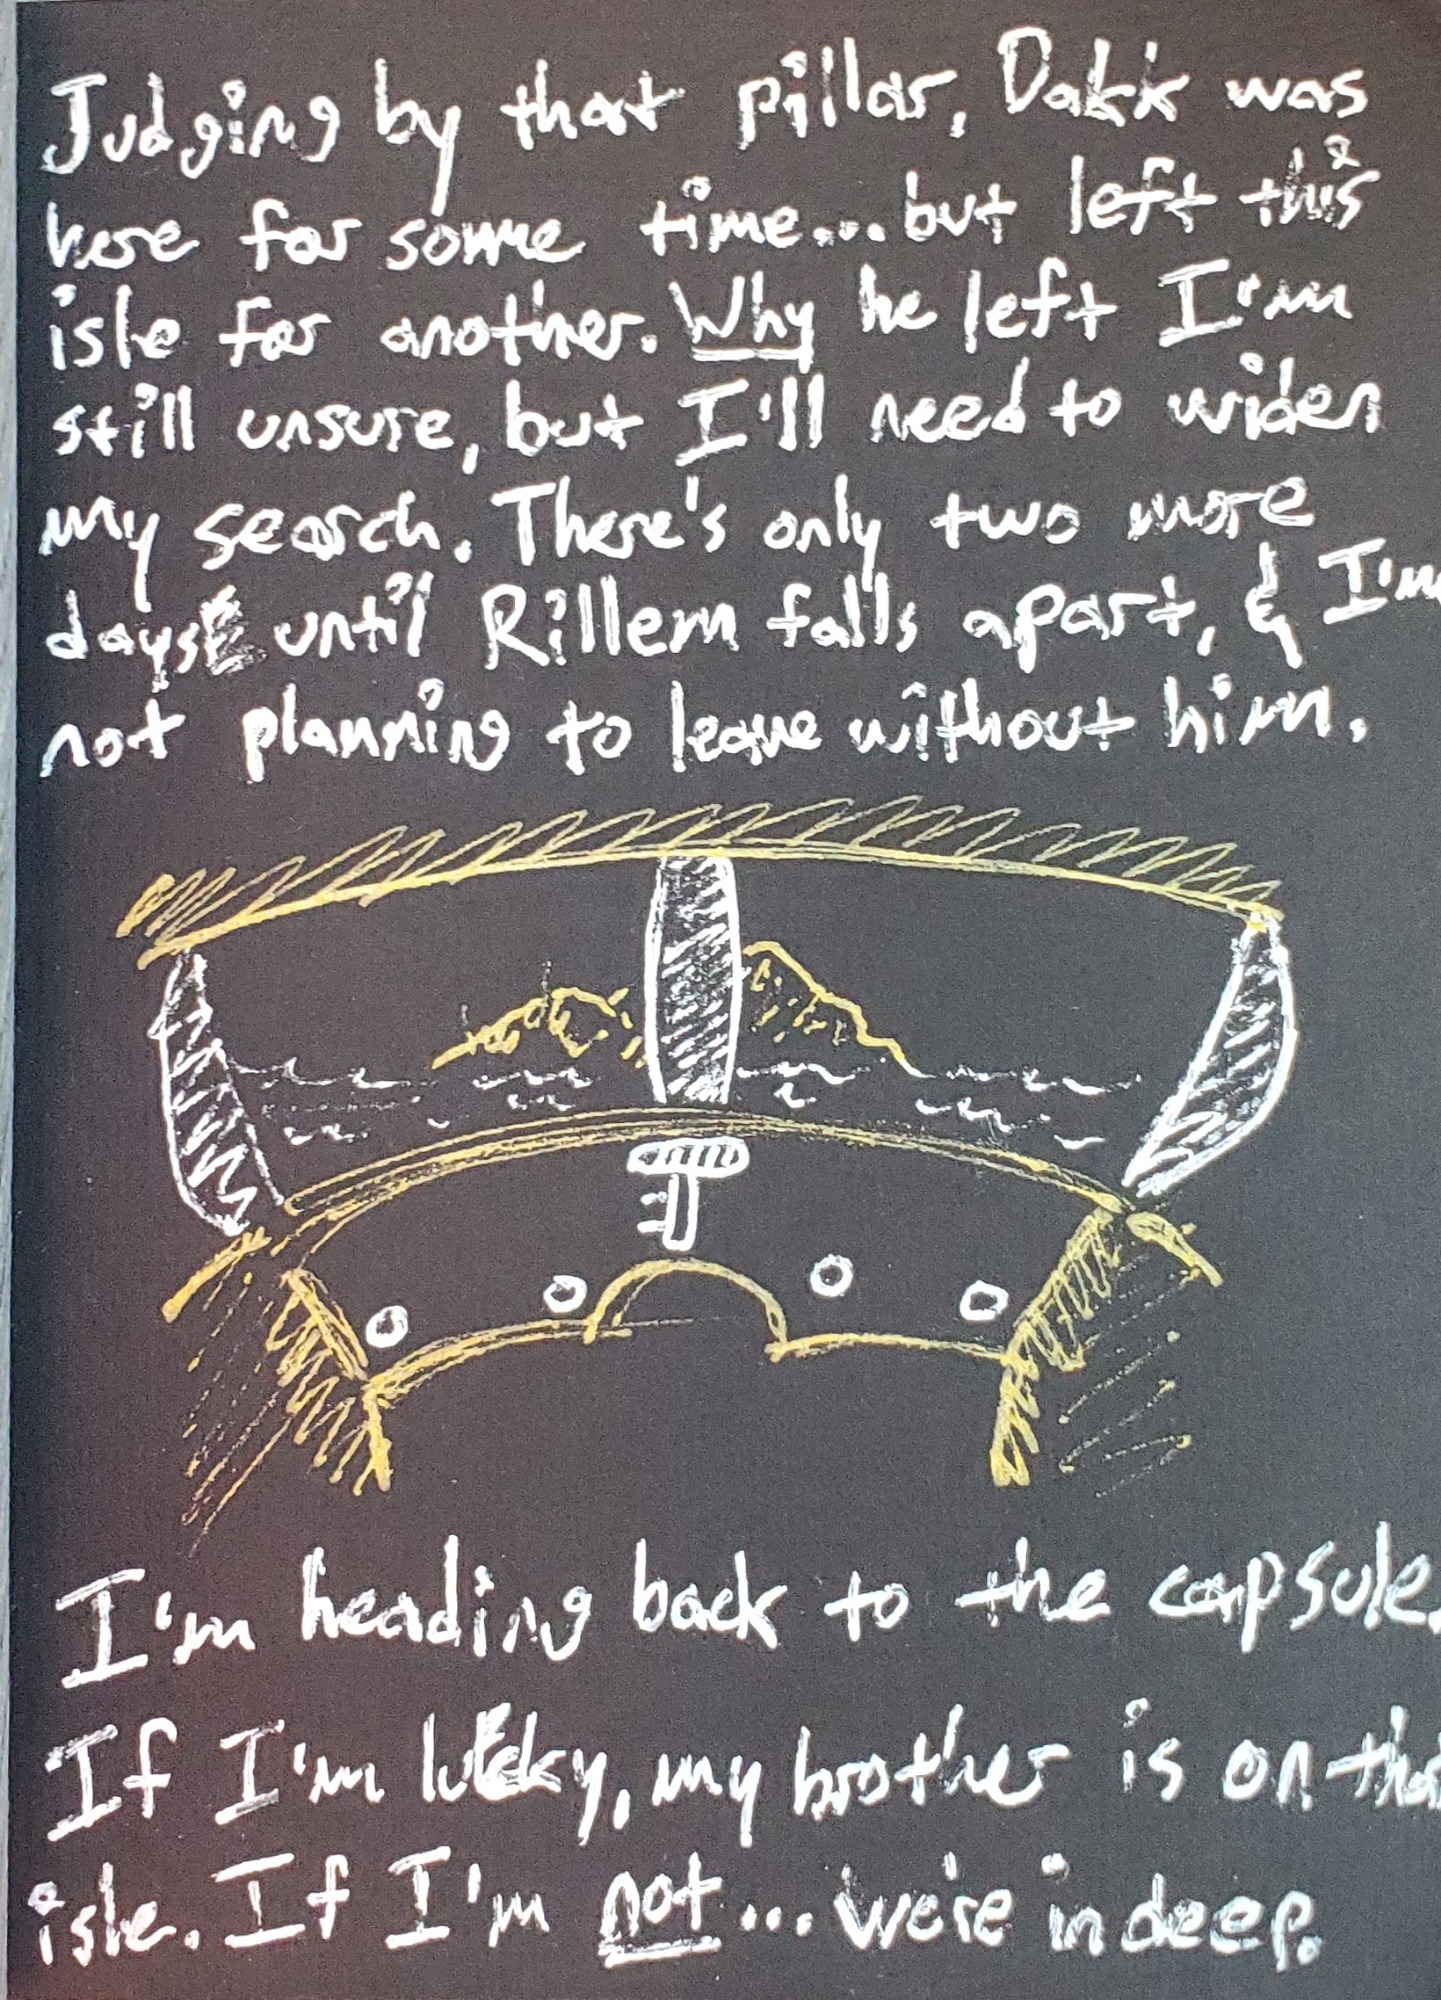 Judging by that pillar, Dakk was
here for some time...but left this
isle for another. Why he left I'm
still unsure, but I'll need to widen
my search. There's only two more
days until Rillem falls apart, & I'm
not planning to leave without him.
I'm heading back to the capsule.
If I'm lucky, my brother is on that
isle. If I'm not... we're in deep.